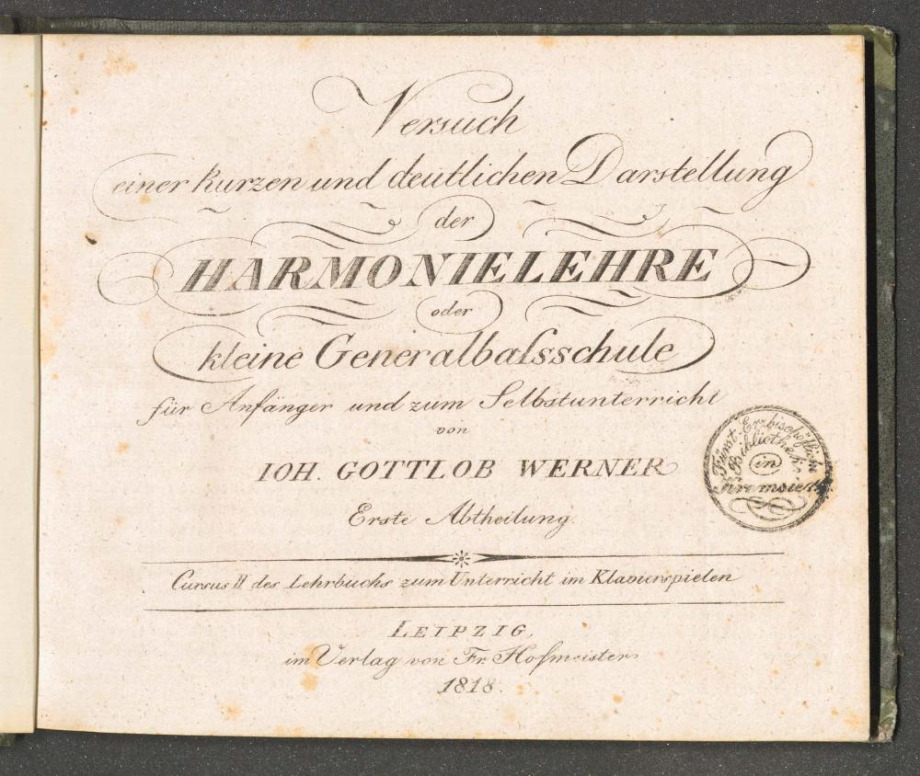 Versuch
einer kurzen und deutlichen Darstellung
der
HARMONIELEHRE
oder
kleine Generalbaſsschule
für Anfänger und zum Selbstunterricht
von
IOH. GOTTLOB WERNER
Erste Abtheilung.
Cursus II des Lehrbuchs zum Unterricht im Klavierspielen
LEIPZIG,
im Verlag von Fr. Hofmeister
1818.
Fürst-Erzbischöfliche
Bibliothek
in
Kremsier